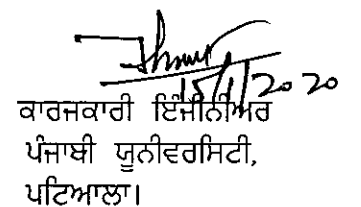 15/1/2020
ਕਾਰਜਕਾਰੀ ਇੰਜੀਨੀਅਰ
ਪੰਜਾਬੀ ਯੂਨੀਵਰਸਿਟੀ,
ਪਟਿਆਲਾ।